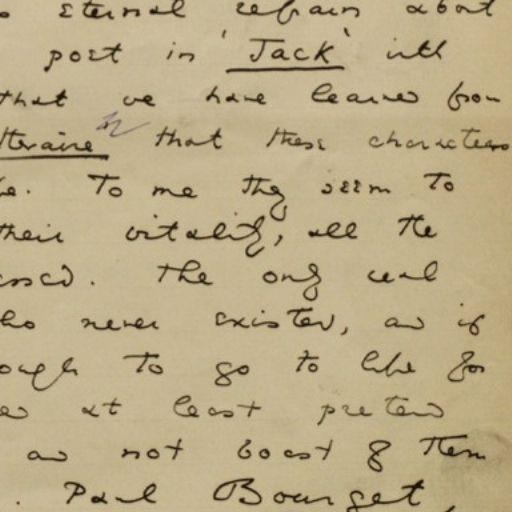 eternal refrain about
poet in 'Jack' with
that we have learned from
ttéraire that these characters
fe. To me they seem to
their vitality, all the
essed. The only real
ho never existed, and if
ough to go to life for
ed at least pretend
and not boast of them
. Paul Bourget,